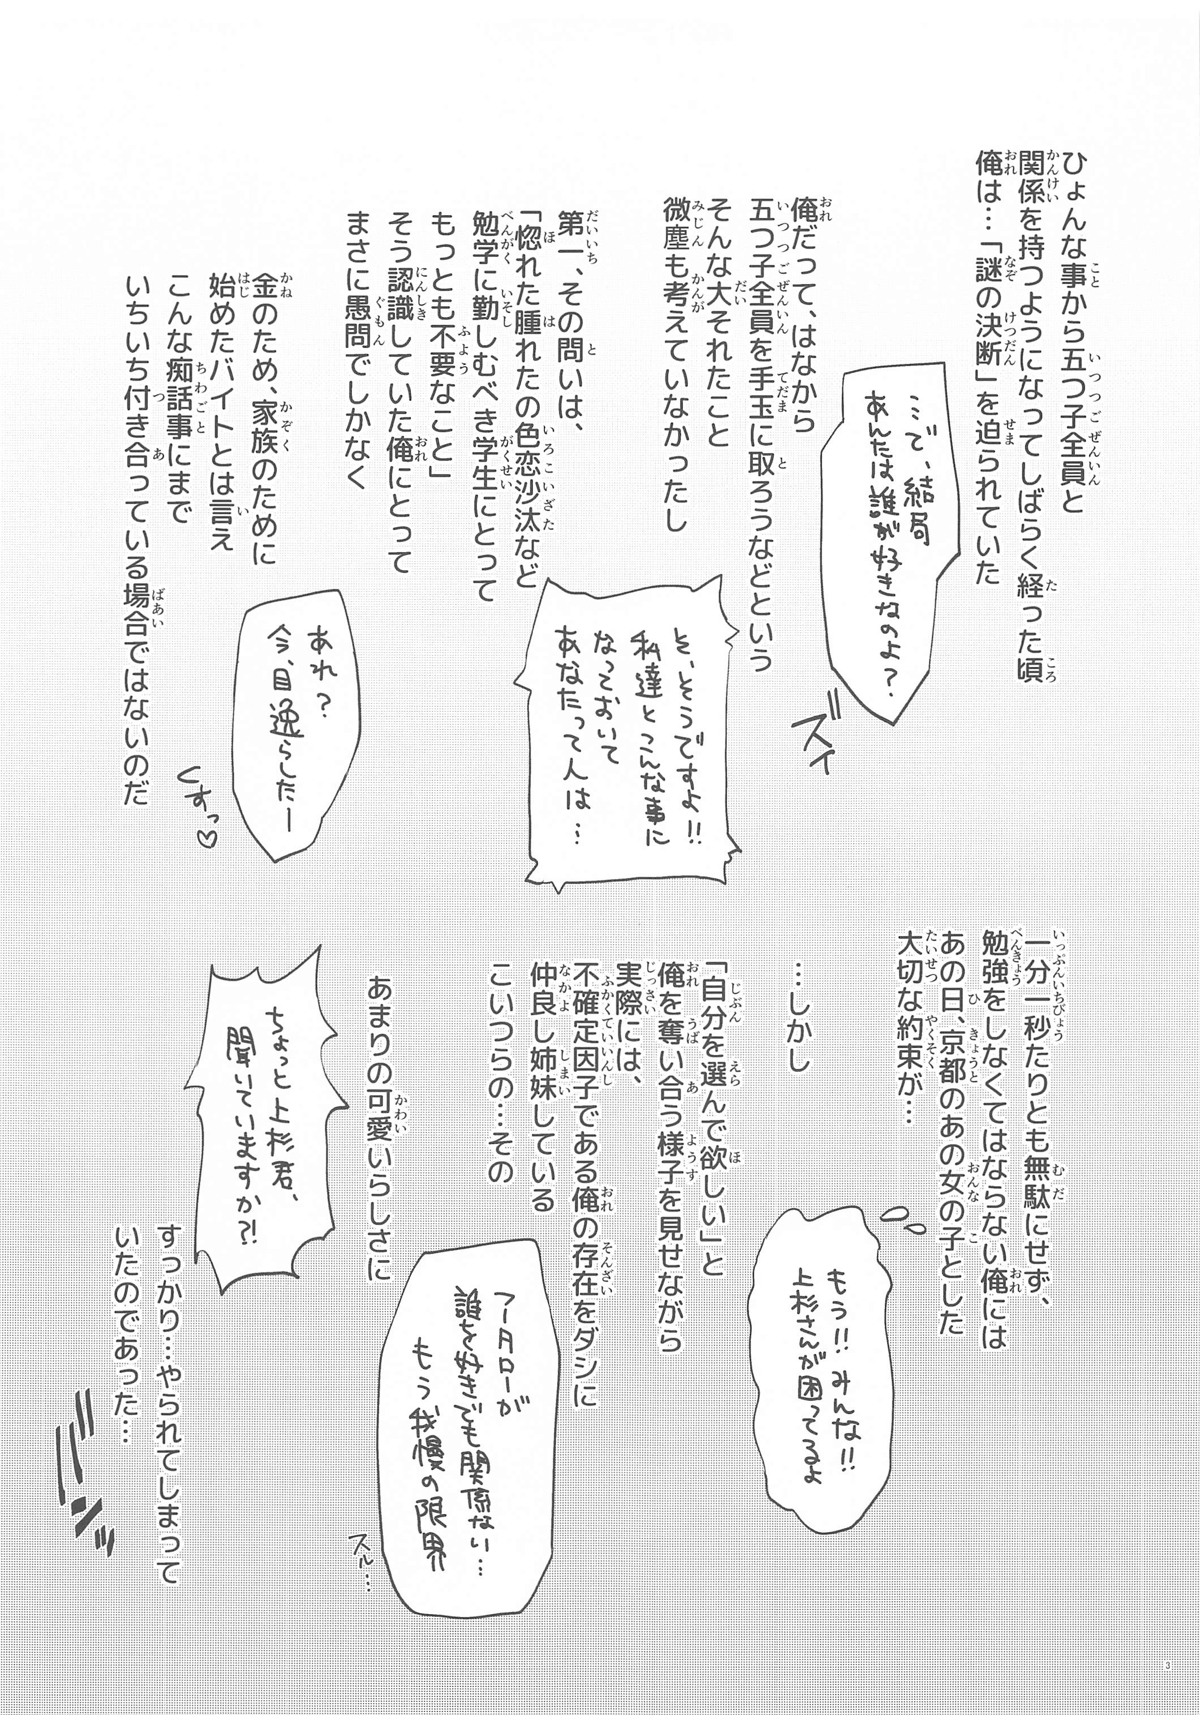 ひょんな事から五つ子全員と
関係を持つようになってしばらく経った頃
俺は…「謎の決断」を迫られていた
…で、結局
あんたは誰が好きなのよ？
ズイ
俺だって、はなから
五つ子全員を手玉に取ろうなどという
そんな大それたこと
微塵も考えていなかったし
そ、そうですよ!!
私達とこんな事に
なっておいて
あなたって人は…
第一、その問いは、
「惚れた腫れたの色恋沙汰など
勉学に勤しむべき学生にとって
もっとも不要なこと」
そう認識していた俺にとって
まさに愚問でしかなく
あれ？
今、目逸らしたー
くすっ♡
金のため、家族のために
始めたバイトとは言え
こんな痴話事にまで
いちいち付き合っている場合ではないのだ
一分一秒たりとも無駄にせず、
勉強をしなくてはならない俺には
あの日、京都のあの女の子とした
大切な約束が…
もう!!みんな!!
上杉さんが困ってるよ
…しかし
「自分を選んで欲しい」と
俺を奪い合う様子を見せながら
実際には、
不確定因子である俺の存在をダシに
仲良し姉妹している
こいつらの…その
フータローが
誰を好きでも関係ない…
もう我慢の限界
スル…
あまりの可愛いらしさに
ちょっと上杉君、
聞いていますか?!
すっかり…やられてしまって
いたのであった…
3